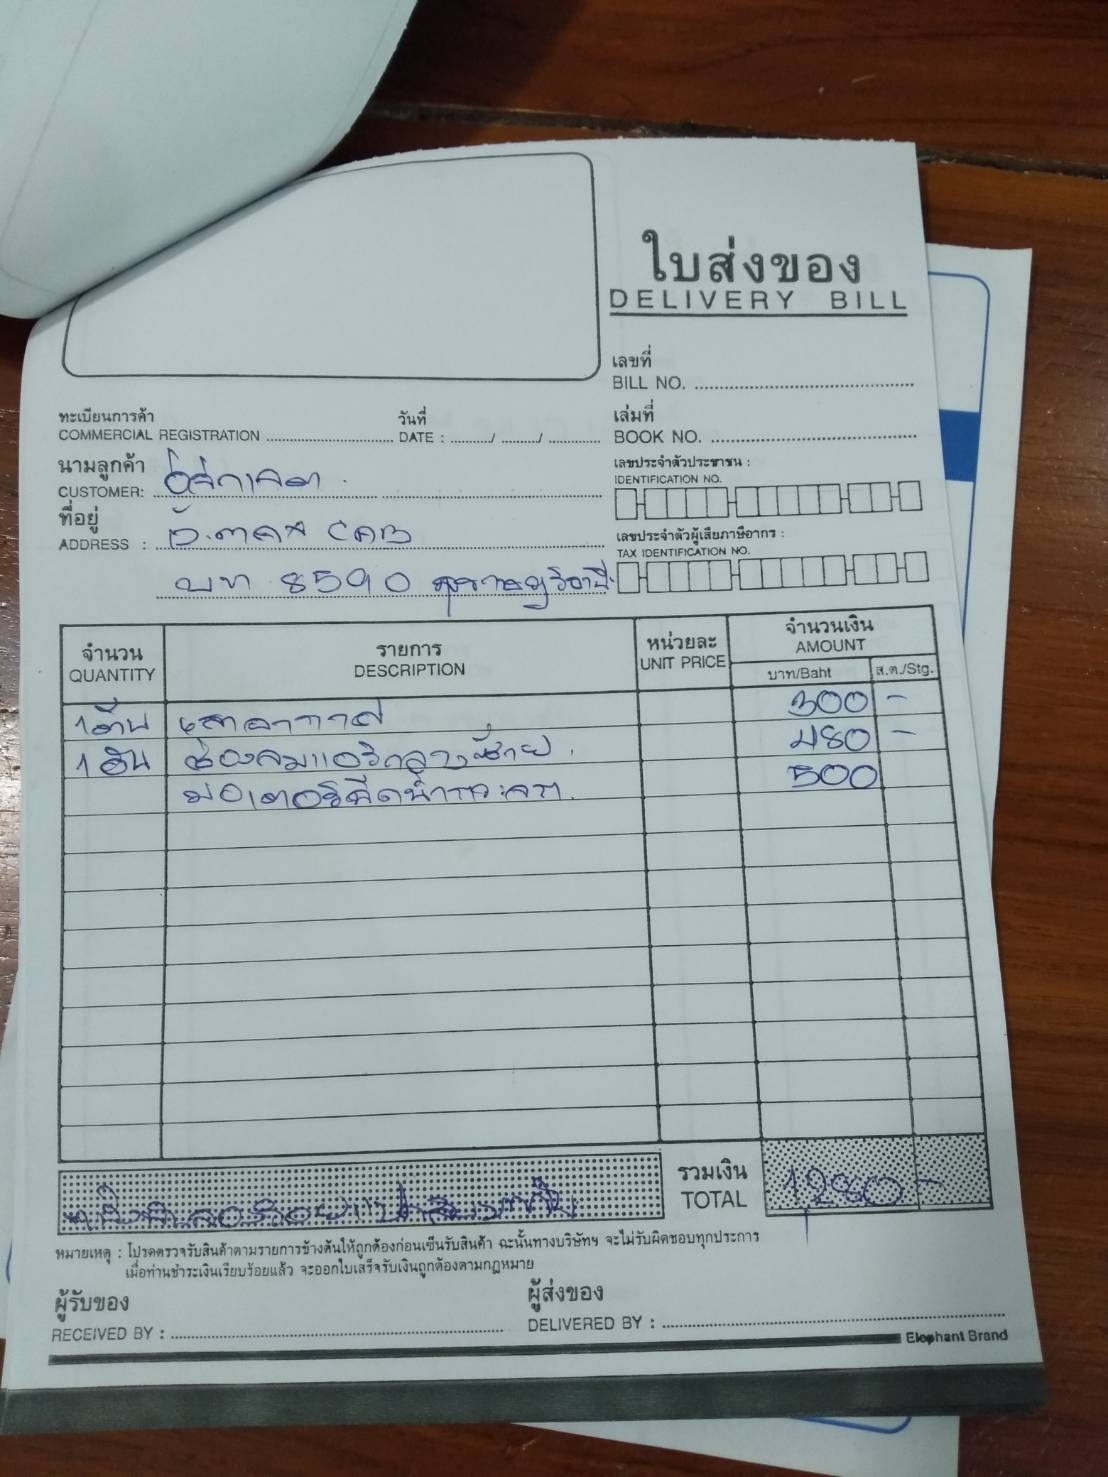 ใบส่งของ
DELIVERY BILL
เลขที่
BILL NO.
ทะเบียนการค้า
COMMERCIAL REGISTRATION
วันที่
DATE : / /
เล่มที่
BOOK NO.
นามลูกค้า
CUSTOMER:
เลขประจำตัวประชาชน :
IDENTIFICATION NO.
ที่อยู่
ADDRESS : CAB
เลขประจำตัวผู้เสียภาษีอากร :
TAX IDENTIFICATION NO.
บท 8590 สุราษฎร์ธานี
จำนวน
QUANTITY
รายการ
DESCRIPTION
หน่วยละ
UNIT PRICE
จำนวนเงิน
AMOUNT
บาท/Baht
ส.ต./Stg.
1 เส้น เสาอากาศ 300 -
1 อัน ช่องลมแอร์กลางซ้าย 480 -
มอเตอร์ฉีดน้ำกระจก 500
รวมเงิน
TOTAL 1280 -
หมายเหตุ : โปรดตรวจรับสินค้าตามรายการข้างต้นให้ถูกต้องก่อนเซ็นรับสินค้า ฉะนั้นทางบริษัทฯ จะไม่รับผิดชอบทุกประการ
เมื่อท่านชำระเงินเรียบร้อยแล้ว จะออกใบเสร็จรับเงินถูกต้องตามกฎหมาย
ผู้รับของ
RECEIVED BY :
ผู้ส่งของ
DELIVERED BY :
Elephant Brand